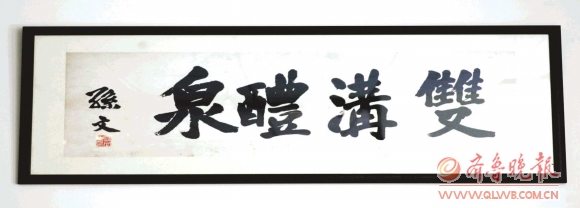 雙溝醴泉
孫文
齐鲁晚报
WWW.QLWB.COM.CN